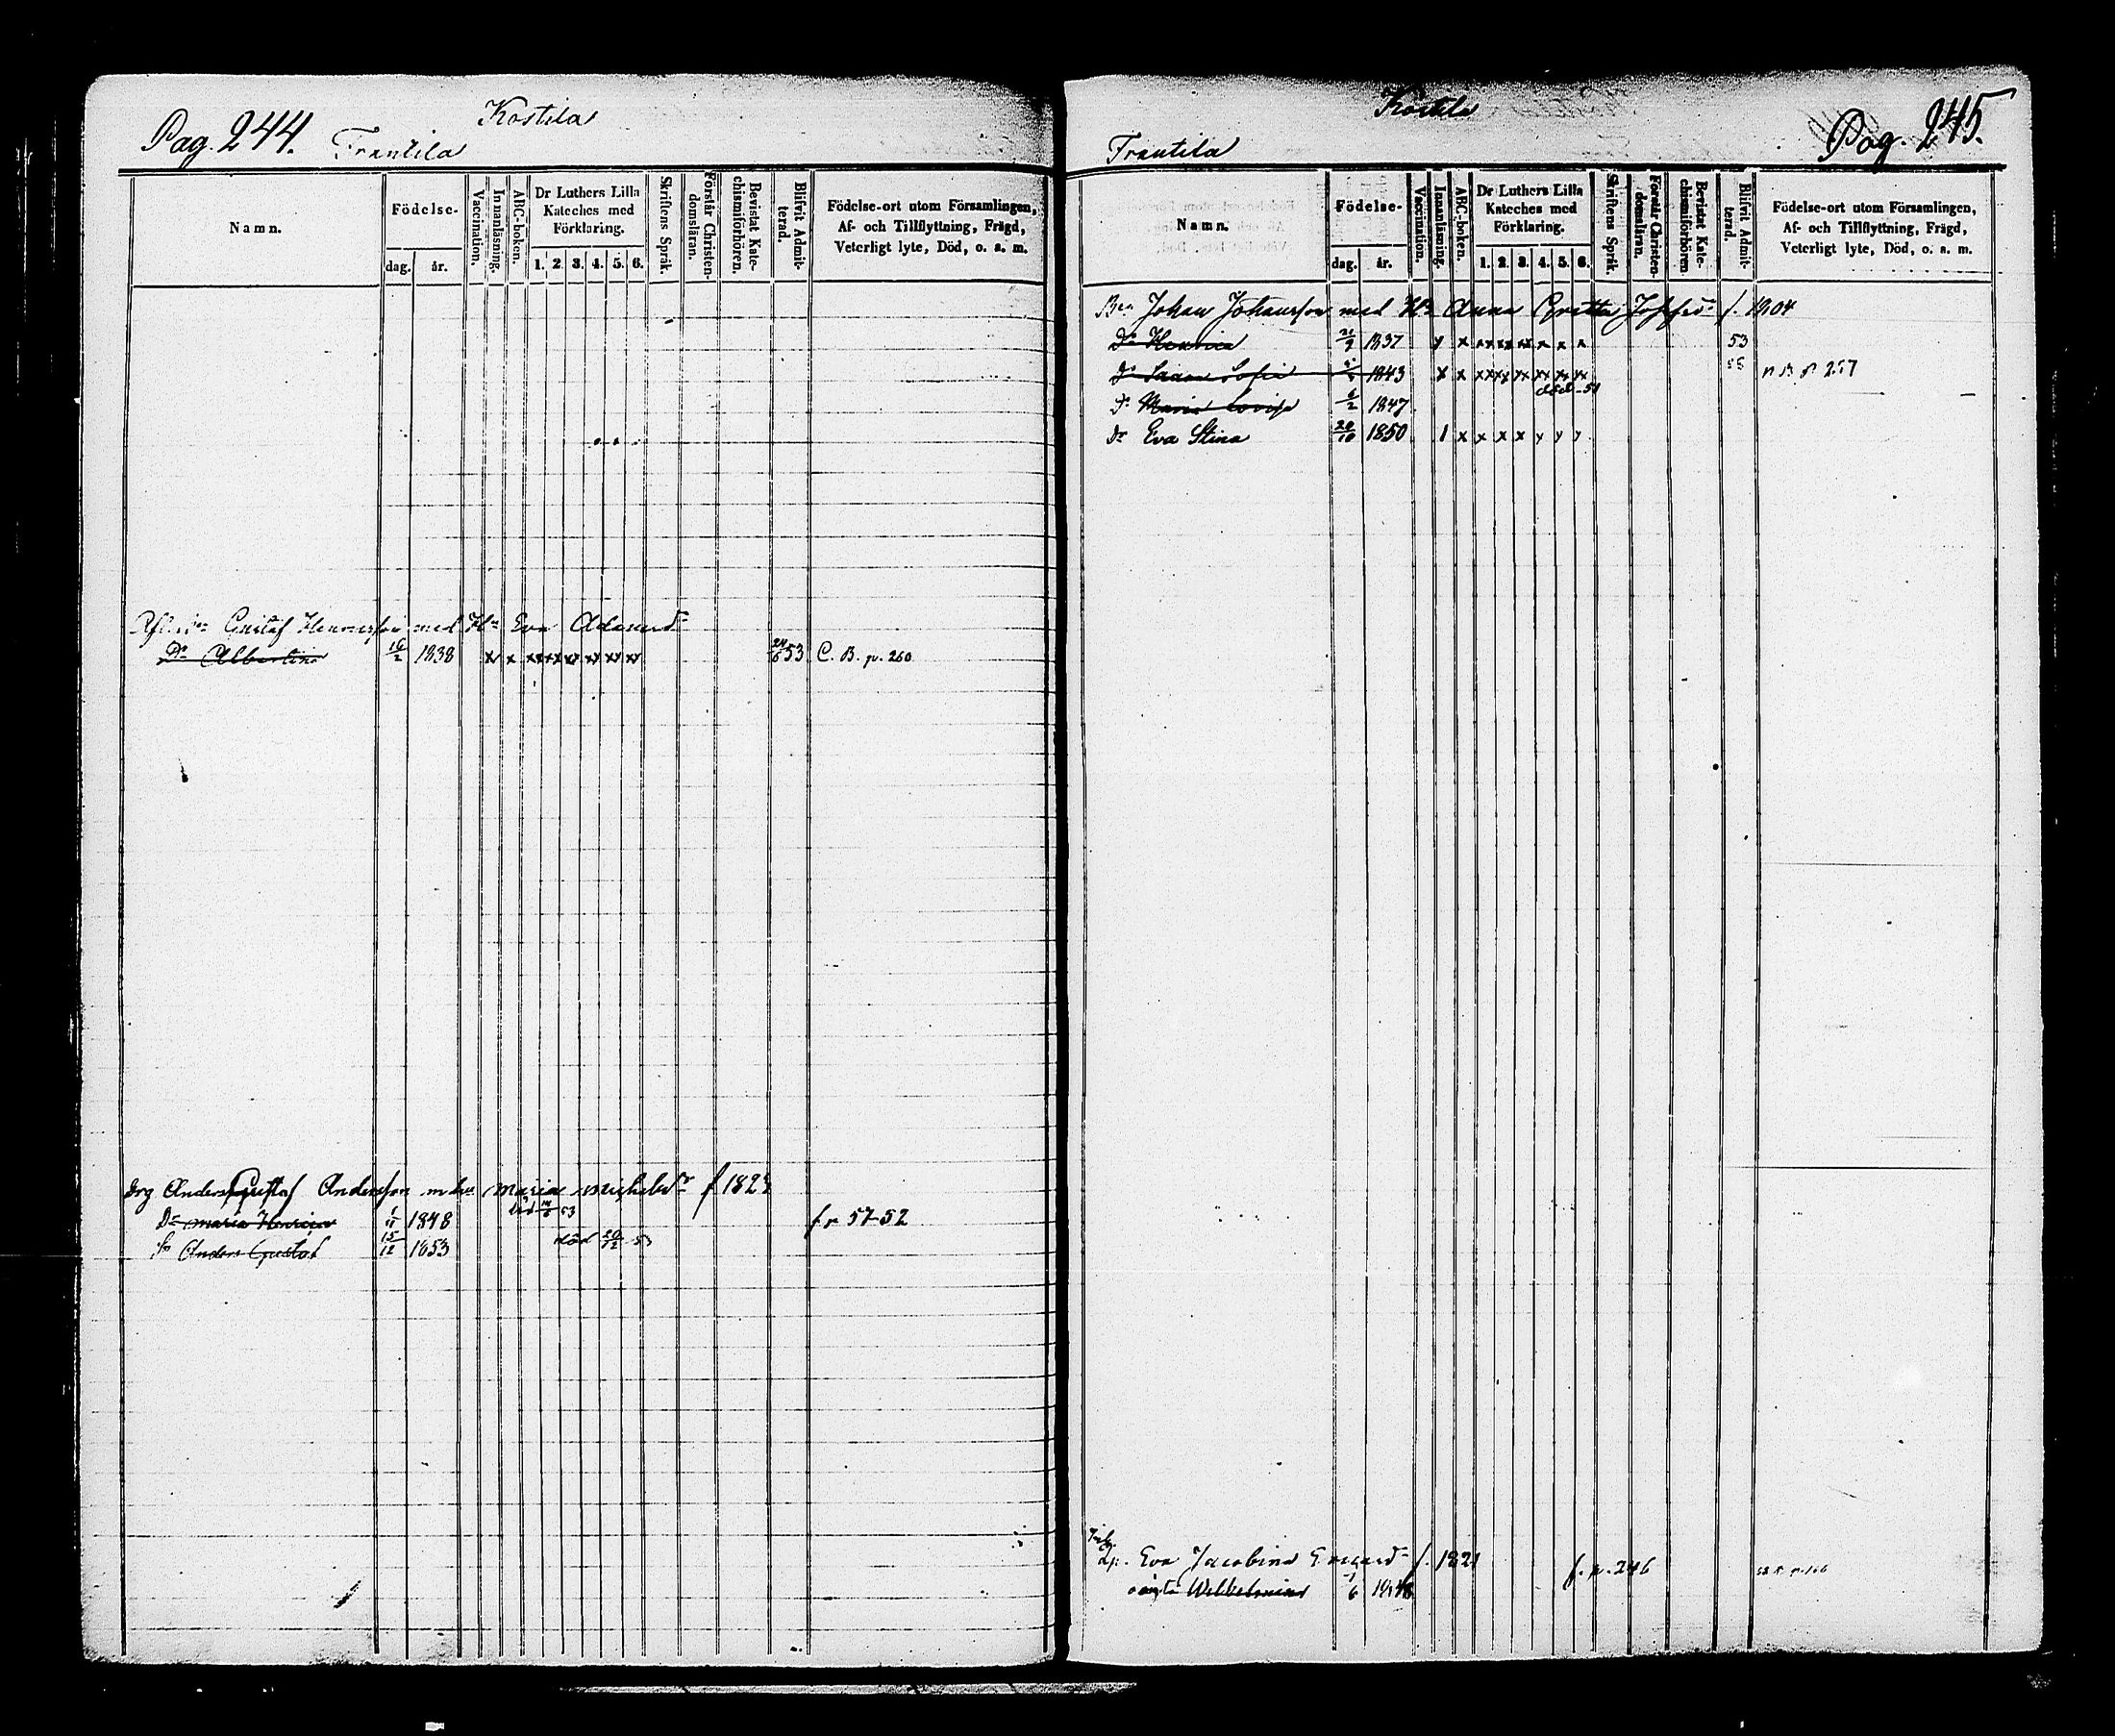 Pag. 244.
Kostila
Frantila
Namn.
Födelse-
dag.
år.
Vaccination.
Innanläsning.
ABC-boken.
Dr Luthers Lilla
Kateches med
Förklaring.
1. 2. 3. 4. 5. 6.
Skriftens Språk.
Förstår Christen-
domsläran.
Bevistat Kate-
chismiförhören.
Blifvit Admit-
terad.
Födelse-ort utom Församlingen,
Af- och Tillflyttning, Frägd,
Veterligt lyte, Död, o. s. m.
Gustaf med Hu Eva Adamsdr
Dr Albertina 16/2 1838 x x xx xx xx xx xx xx 24/6 53 C. B. p. 260
drg Anders Gustaf Andersson m hu maria michelsdr f 1823
Dr maria Henrica 1/11 1848 död 14/6 53 fr 57-52
Sn Anders Gustaf 15/12 1853 död 20/12 53
Kostila
Pag. 245.
Frantila
Namn.
Födelse-
dag.
år.
Vaccination.
Innanläsning.
ABC-boken.
Dr Luthers Lilla
Kateches med
Förklaring.
1. 2. 3. 4. 5. 6.
Skriftens Språk.
Förstår Christen-
domsläran.
Bevistat Kate-
chismiförhören
Blifvit Admit-
terad.
Födelse-ort utom Församlingen,
Af- och Tillflyttning, Frägd,
Veterligt lyte, Död, o. s. m.
Johan Johansson med Hu Anna Gretta Josefsdr f. 1804
Dr Henrica 21/9 1837 x x xx xx xx x x x 53
Dr Sofia 1843 x x xx xx xx xx xx xx p 257
död
Dr Maria Lovisa 6/2 1847
Dr Eva Stina 20/10 1850 1 x x x x y y y
Eva Jacobina f. 1821 f. p. 246
oäkta Wilhelmina 1/6 1848